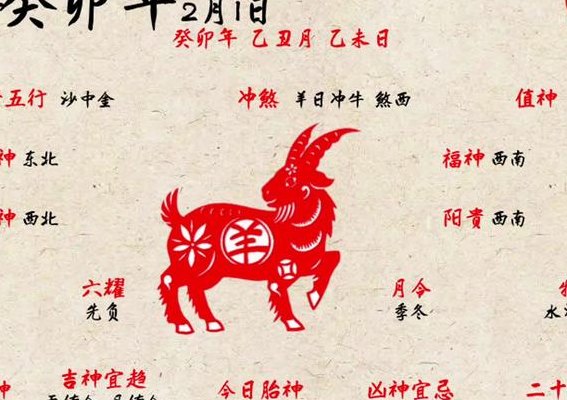 癸卯年2月1日
癸卯年 乙丑月 乙未日
五行 沙中金
冲煞 羊日冲牛 煞西
值神
神 东北
福神 西南
神 西北
阳贵 西南
羊
六耀
先负
月令
季冬
吉神宜趋
今日胎神
凶神宜忌
二十